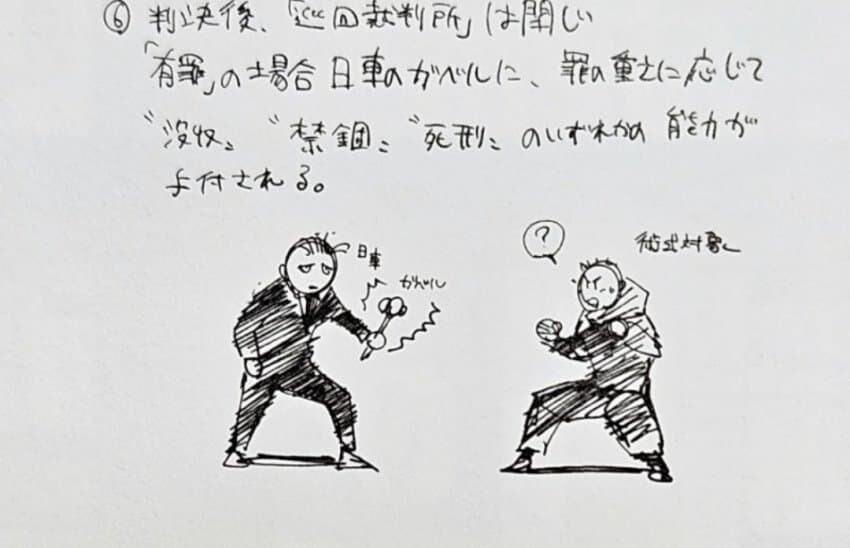 ⑥ 判決後、「巡回裁判所」は閉じ
「有罪」の場合 日車のガベルに、罪の重さに応じて
〝没収〟〝禁錮〟〝死刑〟のいずれかの 能力が
与付される。
日車
ガベル
?
術式対象